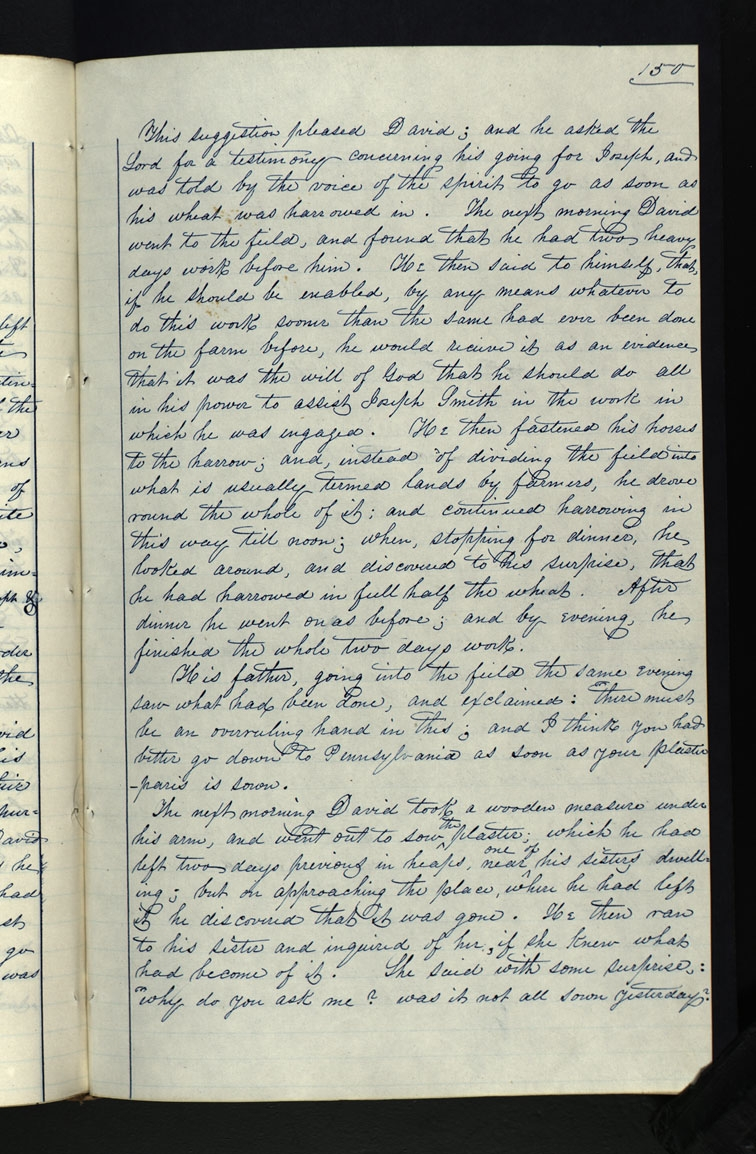 150
This suggestion pleased David; and he asked the
Lord for a testimony concerning his going for Joseph, and
was told by the voice of the spirit to go as soon as
his wheat was harrowed in. The next morning David
went to the field, and found that he had two heavy
days work before him. He then said to himself, that,
if he should be enabled, by any means whatever to
do this work sooner than the same had ever been done
on the farm before, he would recieve it as an evidence
that it was the will of God that he should do all
in his power to assist Joseph Smith in the work in
which he was engaged. He then fastened his horses
to the harrow; and, instead of dividing the field into
what is usually termed lands by farmers, he drove
round the whole of it; and continued harrowing in
this way till noon; when, stopping for dinner, he
looked around, and discovered to his surprise, that
he had harrowed in full half the wheat. After
dinner he went on as before; and by evening, he
finished the whole two days work.
His father, going into the field the same evening
saw what had been done, and exclaimed: "There must
be an overruling hand in this; and I think you had
better go down to Pennsylvania as soon as your plaster
-paris is sown.
The next morning David took a wooden measure under
his arm, and went out to sow the plaster; which he had
left two days previous in heaps, near one of his sisters dwell=
ing; but on approaching the place, where he had left
it he discovered that it was gone. He then ran
to his sister and inquired of her, if she knew what
had become of it. She said with some surprise,:
"why do you ask me? was it not all sown yesterday?
left
the
er
of
had
st
go
was